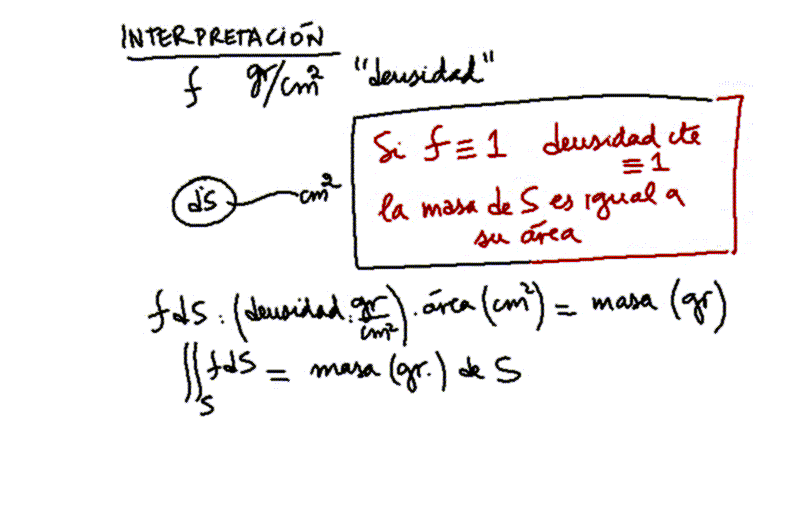 INTERPRETACIÓN
f gr/cm² "densidad"
Si f ≡ 1 densidad cte
≡ 1
la masa de S es igual a
su área
dS cm²
f dS : (densidad : gr/cm²) · área (cm²) = masa (gr)
∬_S f dS = masa (gr.) de S